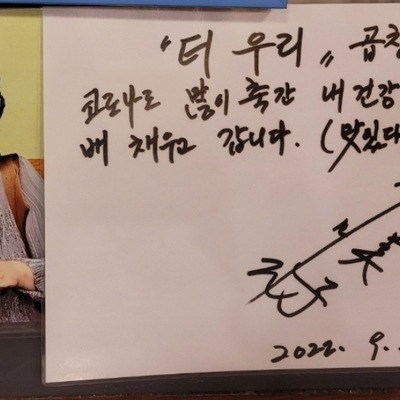 "터 우리" 곱창
코로나로 많이 축간 내 건강
배 채우고 갑니다. (맛있다
2022. 9.